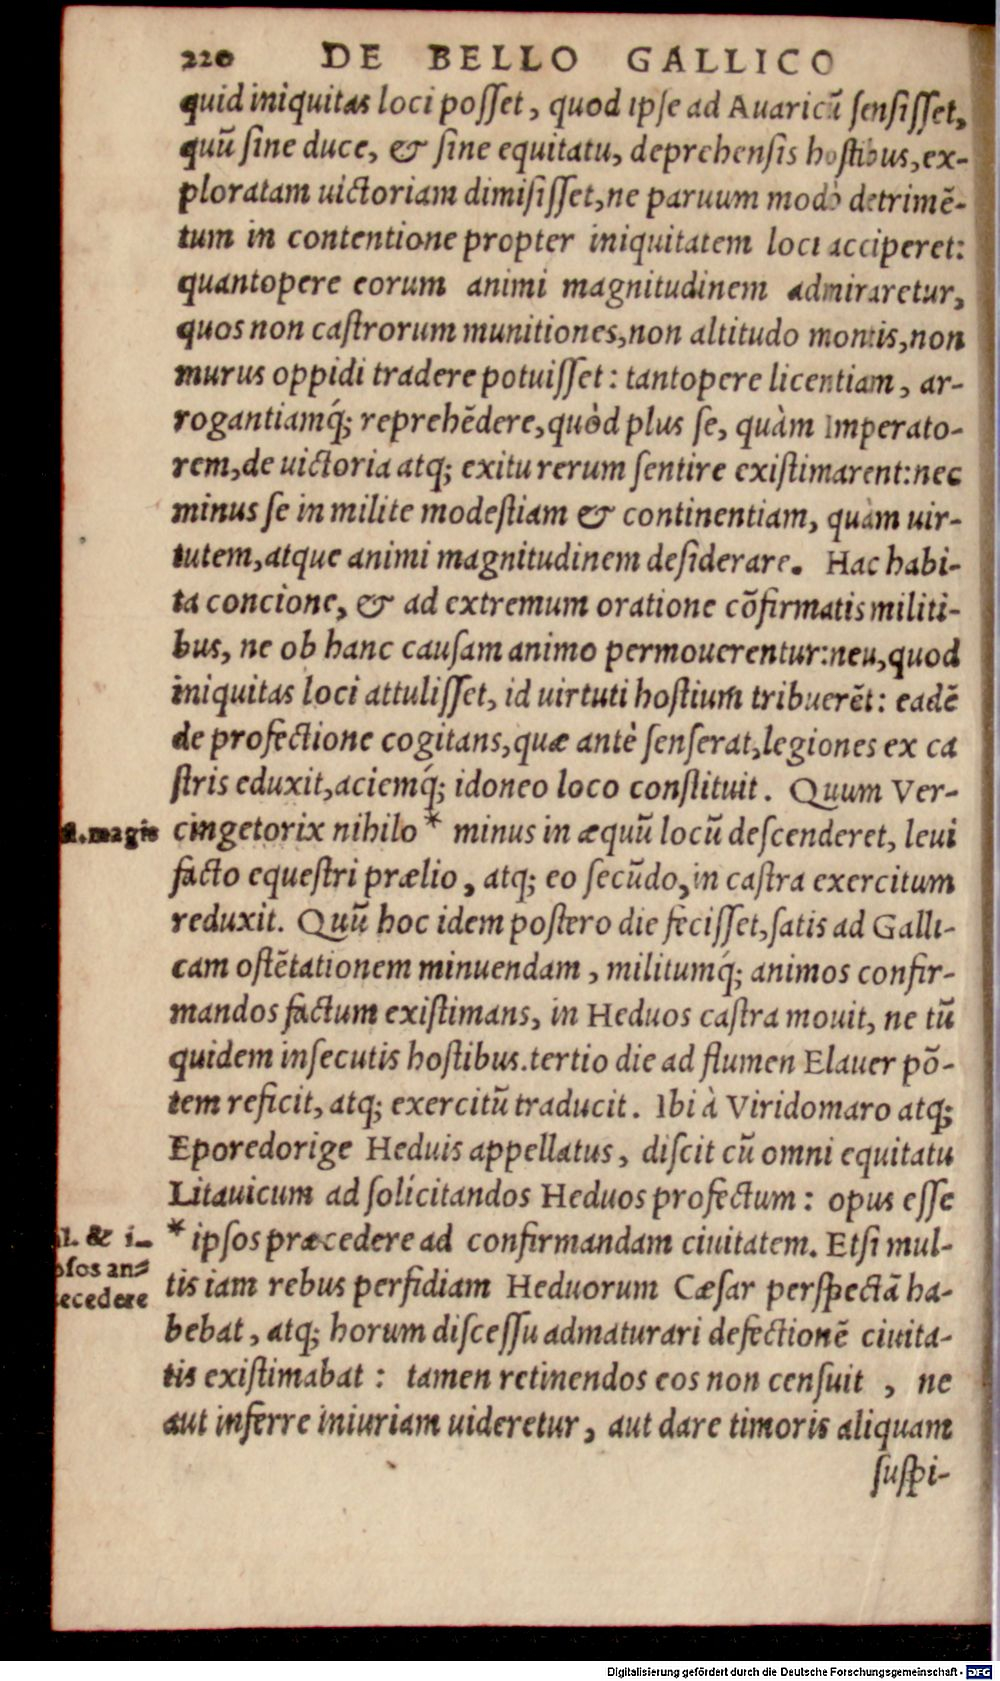 220 DE BELLO GALLICO
quid iniquitas loci poſſet, quod ipſe ad Auaricũ ſenſiſſet,
quũ ſine duce, & ſine equitatu, deprehenſis hoſtibus, ex-
ploratam uictoriam dimiſiſſet, ne paruum modò detrimẽ-
tum in contentione propter iniquitatem loci acciperet:
quantopere eorum animi magnitudinem admiraretur,
quos non caſtrorum munitiones, non altitudo montis, non
murus oppidi tradere potuiſſet: tantopere licentiam, ar-
rogantiamq́; reprehẽdere, quòd plus ſe, quàm Imperato-
rem, de uictoria atq; exitu rerum ſentire exiſtimarent: nec
minus ſe in milite modeſtiam & continentiam, quàm uir-
tutem, atque animi magnitudinem deſiderare. Hac habi-
ta concione, & ad extremum oratione cõfirmatis militi-
bus, ne ob hanc cauſam animo permouerentur: neu, quod
iniquitas loci attuliſſet, id uirtuti hoſtium tribuerẽt: eadẽ
de profectione cogitans, quæ antè ſenſerat, legiones ex ca
ſtris eduxit, aciemq́; idoneo loco conſtituit. Quum Ver-
al. magis cingetorix nihilo * minus in æquũ locũ deſcenderet, leui
facto equeſtri prælio, atq; eo ſecũdo, in caſtra exercitum
reduxit. Quũ hoc idem poſtero die feciſſet, ſatis ad Galli-
cam oſtẽtationem minuendam, militumq́; animos confir-
mandos factum exiſtimans, in Heduos caſtra mouit, ne tũ
quidem inſecutis hoſtibus. tertio die ad flumen Elauer põ-
tem reficit, atq; exercitũ traducit. Ibi à Viridomaro atq;
Eporedorige Heduis appellatus, diſcit cũ omni equitatu
Litauicum ad ſolicitandos Heduos profectum: opus eſſe
al. & i- * ipſos præcedere ad confirmandam ciuitatem. Etſi mul-
pſos an= tis iam rebus perfidiam Heduorum Cæſar perſpectã ha-
tecedere bebat, atq; horum diſceſſu admaturari defectionẽ ciuita-
tis exiſtimabat: tamen retinendos eos non cenſuit, ne
aut inferre iniuriam uideretur, aut dare timoris aliquam
ſuſpi-
Digitalisierung gefördert durch die Deutsche Forschungsgemeinschaft - DFG